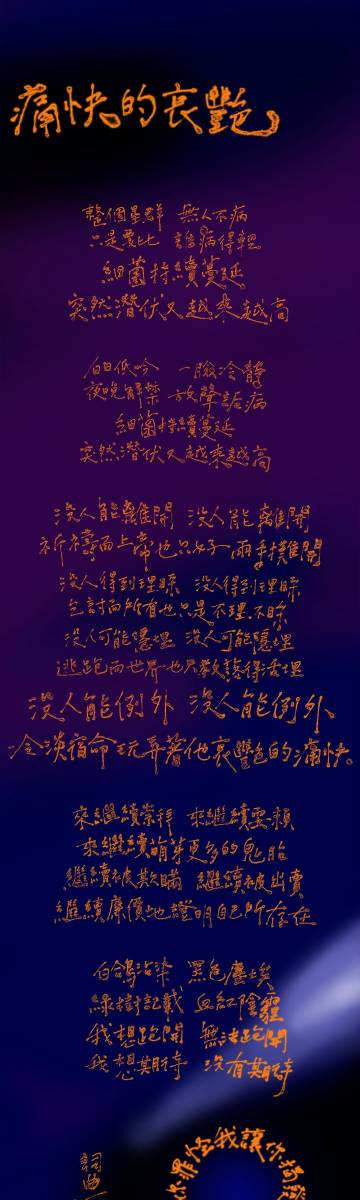 痛快的哀豔
整個星群 無人不病
只是要比 誰病得輕
細菌持續蔓延
突然潛伏又越來越高
白日低吟 一臉冷靜
夜晚解禁 放聲詬病
細菌持續蔓延
突然潛伏又越來越高
沒人能離開 沒人能離開
祈禱而上帝也只好 兩手撲開
沒人得到理睬 沒人得到理睬
乞討而所有也只是不理不睬
沒人可能隱埋 沒人可能隱埋
逃跑而世界也只教懂得活埋
沒人能例外 沒人能例外
冷淡宿命玩弄著他哀豔的痛快。
來繼續崇拜 來繼續耍賴
來繼續萌芽更多的鬼胎
繼續被欺瞞 繼續被出賣
繼續廉價地證明自己所存在
白鴿沾染 黑色塵埃
綠樹記載 血紅陰霾
我想跑開 無法跑開
我想期待 沒有期待
詞曲
罪怪我讓你